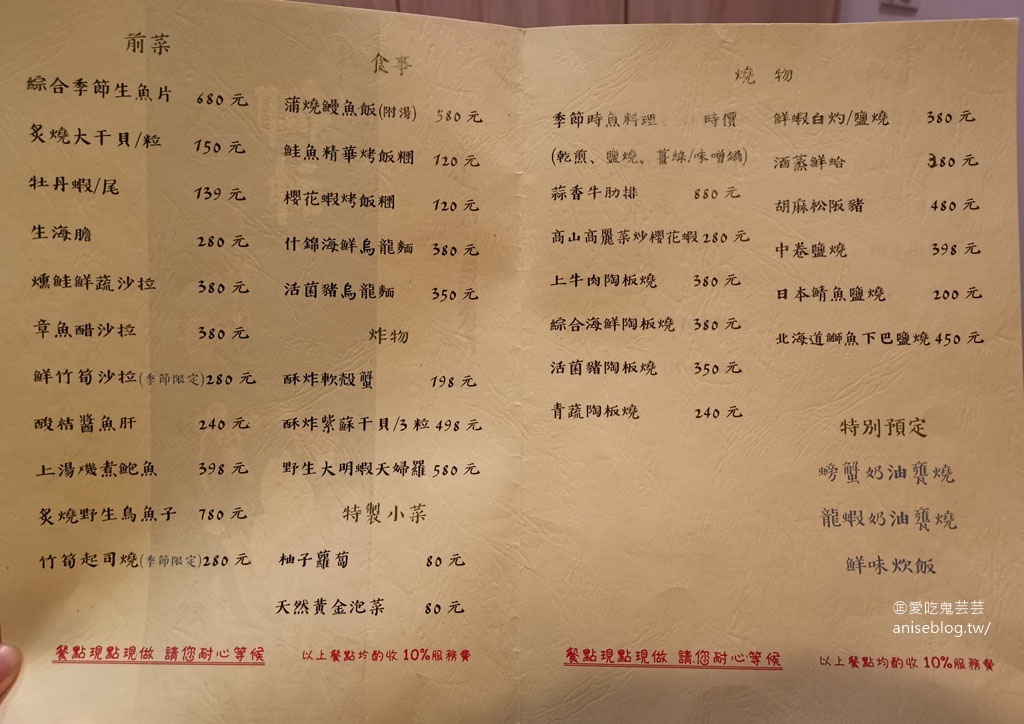 前菜
綜合季節生魚片 680 元
炙燒大干貝/粒 150 元
牡丹蝦/尾 139 元
生海膽 280 元
燻鮭鮮蔬沙拉 380 元
章魚醋沙拉 380 元
鮮竹筍沙拉(季節限定)280 元
酸桔醬魚肝 240 元
上湯磯煮鮑魚 398 元
炙燒野生烏魚子 780 元
竹筍起司燒(季節限定)280 元
食事
蒲燒鰻魚飯(附湯) 580 元
鮭魚精華烤飯糰 120 元
櫻花蝦烤飯糰 120 元
什錦海鮮烏龍麵 380 元
活菌豬烏龍麵 350 元
炸物
酥炸軟殼蟹 198 元
酥炸紫蘇干貝/3 粒 498 元
野生大明蝦天婦羅 580 元
特製小菜
柚子蘿蔔 80 元
天然黃金泡菜 80 元
餐點現點現做 請您耐心等候
以上餐點均酌收 10%服務費
燒 物
季節時魚料理 時價
(乾煎、鹽燒、薑絲/味噌鍋)
蒜香牛肋排 880 元
高山高麗菜炒櫻花蝦 280 元
上牛肉陶板燒 380 元
綜合海鮮陶板燒 380 元
活菌豬陶板燒 350 元
青蔬陶板燒 240 元
鮮蝦白灼/鹽燒 380 元
酒蒸鮮蛤 380 元
胡麻松阪豬 480 元
中卷鹽燒 398 元
日本鯖魚鹽燒 200 元
北海道鰤魚下巴鹽燒 450 元
特別預定
螃蟹奶油甕燒
龍蝦奶油甕燒
鮮味炊飯
愛吃鬼芸芸
aniseblog.tw/
餐點現點現做 請您耐心等候
以上餐點均酌收 10%服務費